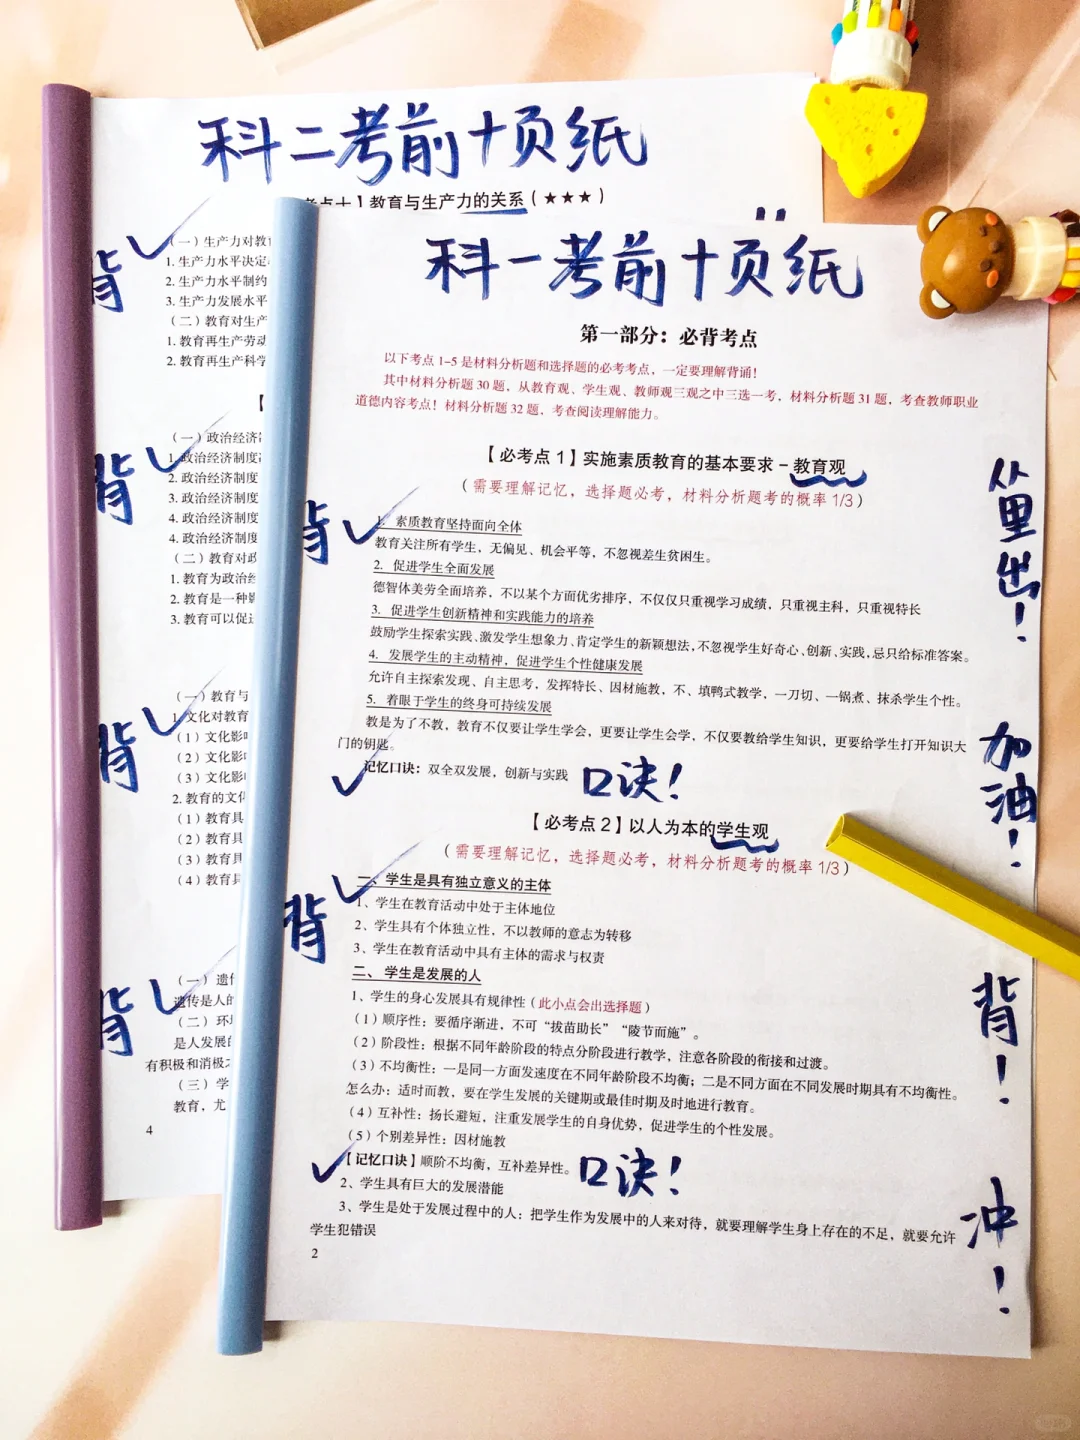 科二考前十页纸
考点十】教育与生产力的关系（★★★）
（一）生产力对教育
1. 生产力水平决定
2. 生产力水平制约
3. 生产力发展水平
（二）教育对生产
1. 教育再生产劳动
2. 教育再生产科学
背
【
（一）政治经济制
1. 政治经济制度
2. 政治经济制度
3. 政治经济制度
4. 政治经济制度
4. 政治经济制度
（二）教育对政
1. 教育为政治经
2. 教育是一种影
3. 教育可以促进
背
（一）教育与
1. 文化对教育
（1）文化影响
（2）文化影
（3）文化影
2. 教育的文化
（1）教育具
（2）教育具
（3）教育具
（4）教育具
背
（一）遗传
遗传是人的
（二）环境
是人发展的
有积极和消极之
（三）学
教育，尤
背
4
科一考前十页纸
第一部分：必背考点
以下考点 1-5 是材料分析题和选择题的必考考点，一定要理解背诵！
其中材料分析题 30 题，从教育观、学生观、教师观三观之中三选一考，材料分析题 31 题，考查教师职业
道德内容考点！材料分析题 32 题，考查阅读理解能力。
【必考点 1】实施素质教育的基本要求－教育观
（需要理解记忆，选择题必考，材料分析题考的概率 1/3）
背
1. 素质教育坚持面向全体
教育关注所有学生，无偏见、机会平等，不忽视差生贫困生。
2. 促进学生全面发展
德智体美劳全面培养，不以某个方面优劣排序，不仅仅只重视学习成绩，只重视主科，只重视特长
3. 促进学生创新精神和实践能力的培养
鼓励学生探索实践、激发学生想象力、肯定学生的新颖想法，不忽视学生好奇心、创新、实践，忌只给标准答案。
4. 发展学生的主动精神，促进学生个性健康发展
允许自主探索发现、自主思考，发挥特长、因材施教，不、填鸭式教学，一刀切、一锅煮、抹杀学生个性。
5. 着眼于学生的终身可持续发展
教是为了不教，教育不仅要让学生学会，更要让学生会学，不仅要教给学生知识，更要给学生打开知识大
门的钥匙。
记忆口诀：双全双发展，创新与实践 口诀！
【必考点 2】以人为本的学生观
（需要理解记忆，选择题必考，材料分析题考的概率 1/3）
背
一、学生是具有独立意义的主体
1、学生在教育活动中处于主体地位
2、学生具有个体独立性，不以教师的意志为转移
3、学生在教育活动中具有主体的需求与权责
二、学生是发展的人
1、学生的身心发展具有规律性（此小点会出选择题）
（1）顺序性：要循序渐进，不可“拔苗助长”“陵节而施”。
（2）阶段性：根据不同年龄阶段的特点分阶段进行教学，注意各阶段的衔接和过渡。
（3）不均衡性：一是同一方面发速度在不同年龄阶段不均衡；二是不同方面在不同发展时期具有不均衡性。
怎么办：适时而教，要在学生发展的关键期或最佳时期及时地进行教育。
（4）互补性：扬长避短，注重发展学生的自身优势，促进学生的个性发展。
（5）个别差异性：因材施教
【记忆口诀】顺阶不均衡，互补差异性。口诀！
2、学生具有巨大的发展潜能
3、学生是处于发展过程中的人：把学生作为发展中的人来对待，就要理解学生身上存在的不足，就要允许
学生犯错误
2
从里出！
加油！
背！
冲！